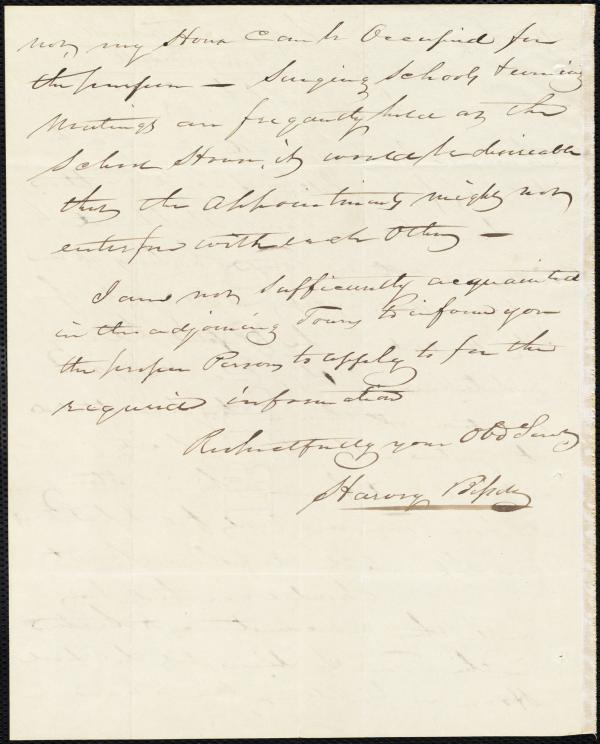 not, my House can be Occupied for
the purpose — Singing Schools & evening
Meetings are frequently held at the
School House, it would be desireable
that the appointments might not
enterfere with each Other —
I am not sufficiently acquainted
in the adjoining Towns to inform you
the proper Persons to apply to for the
required information
Respectfully your Obdt Servt
Harvey